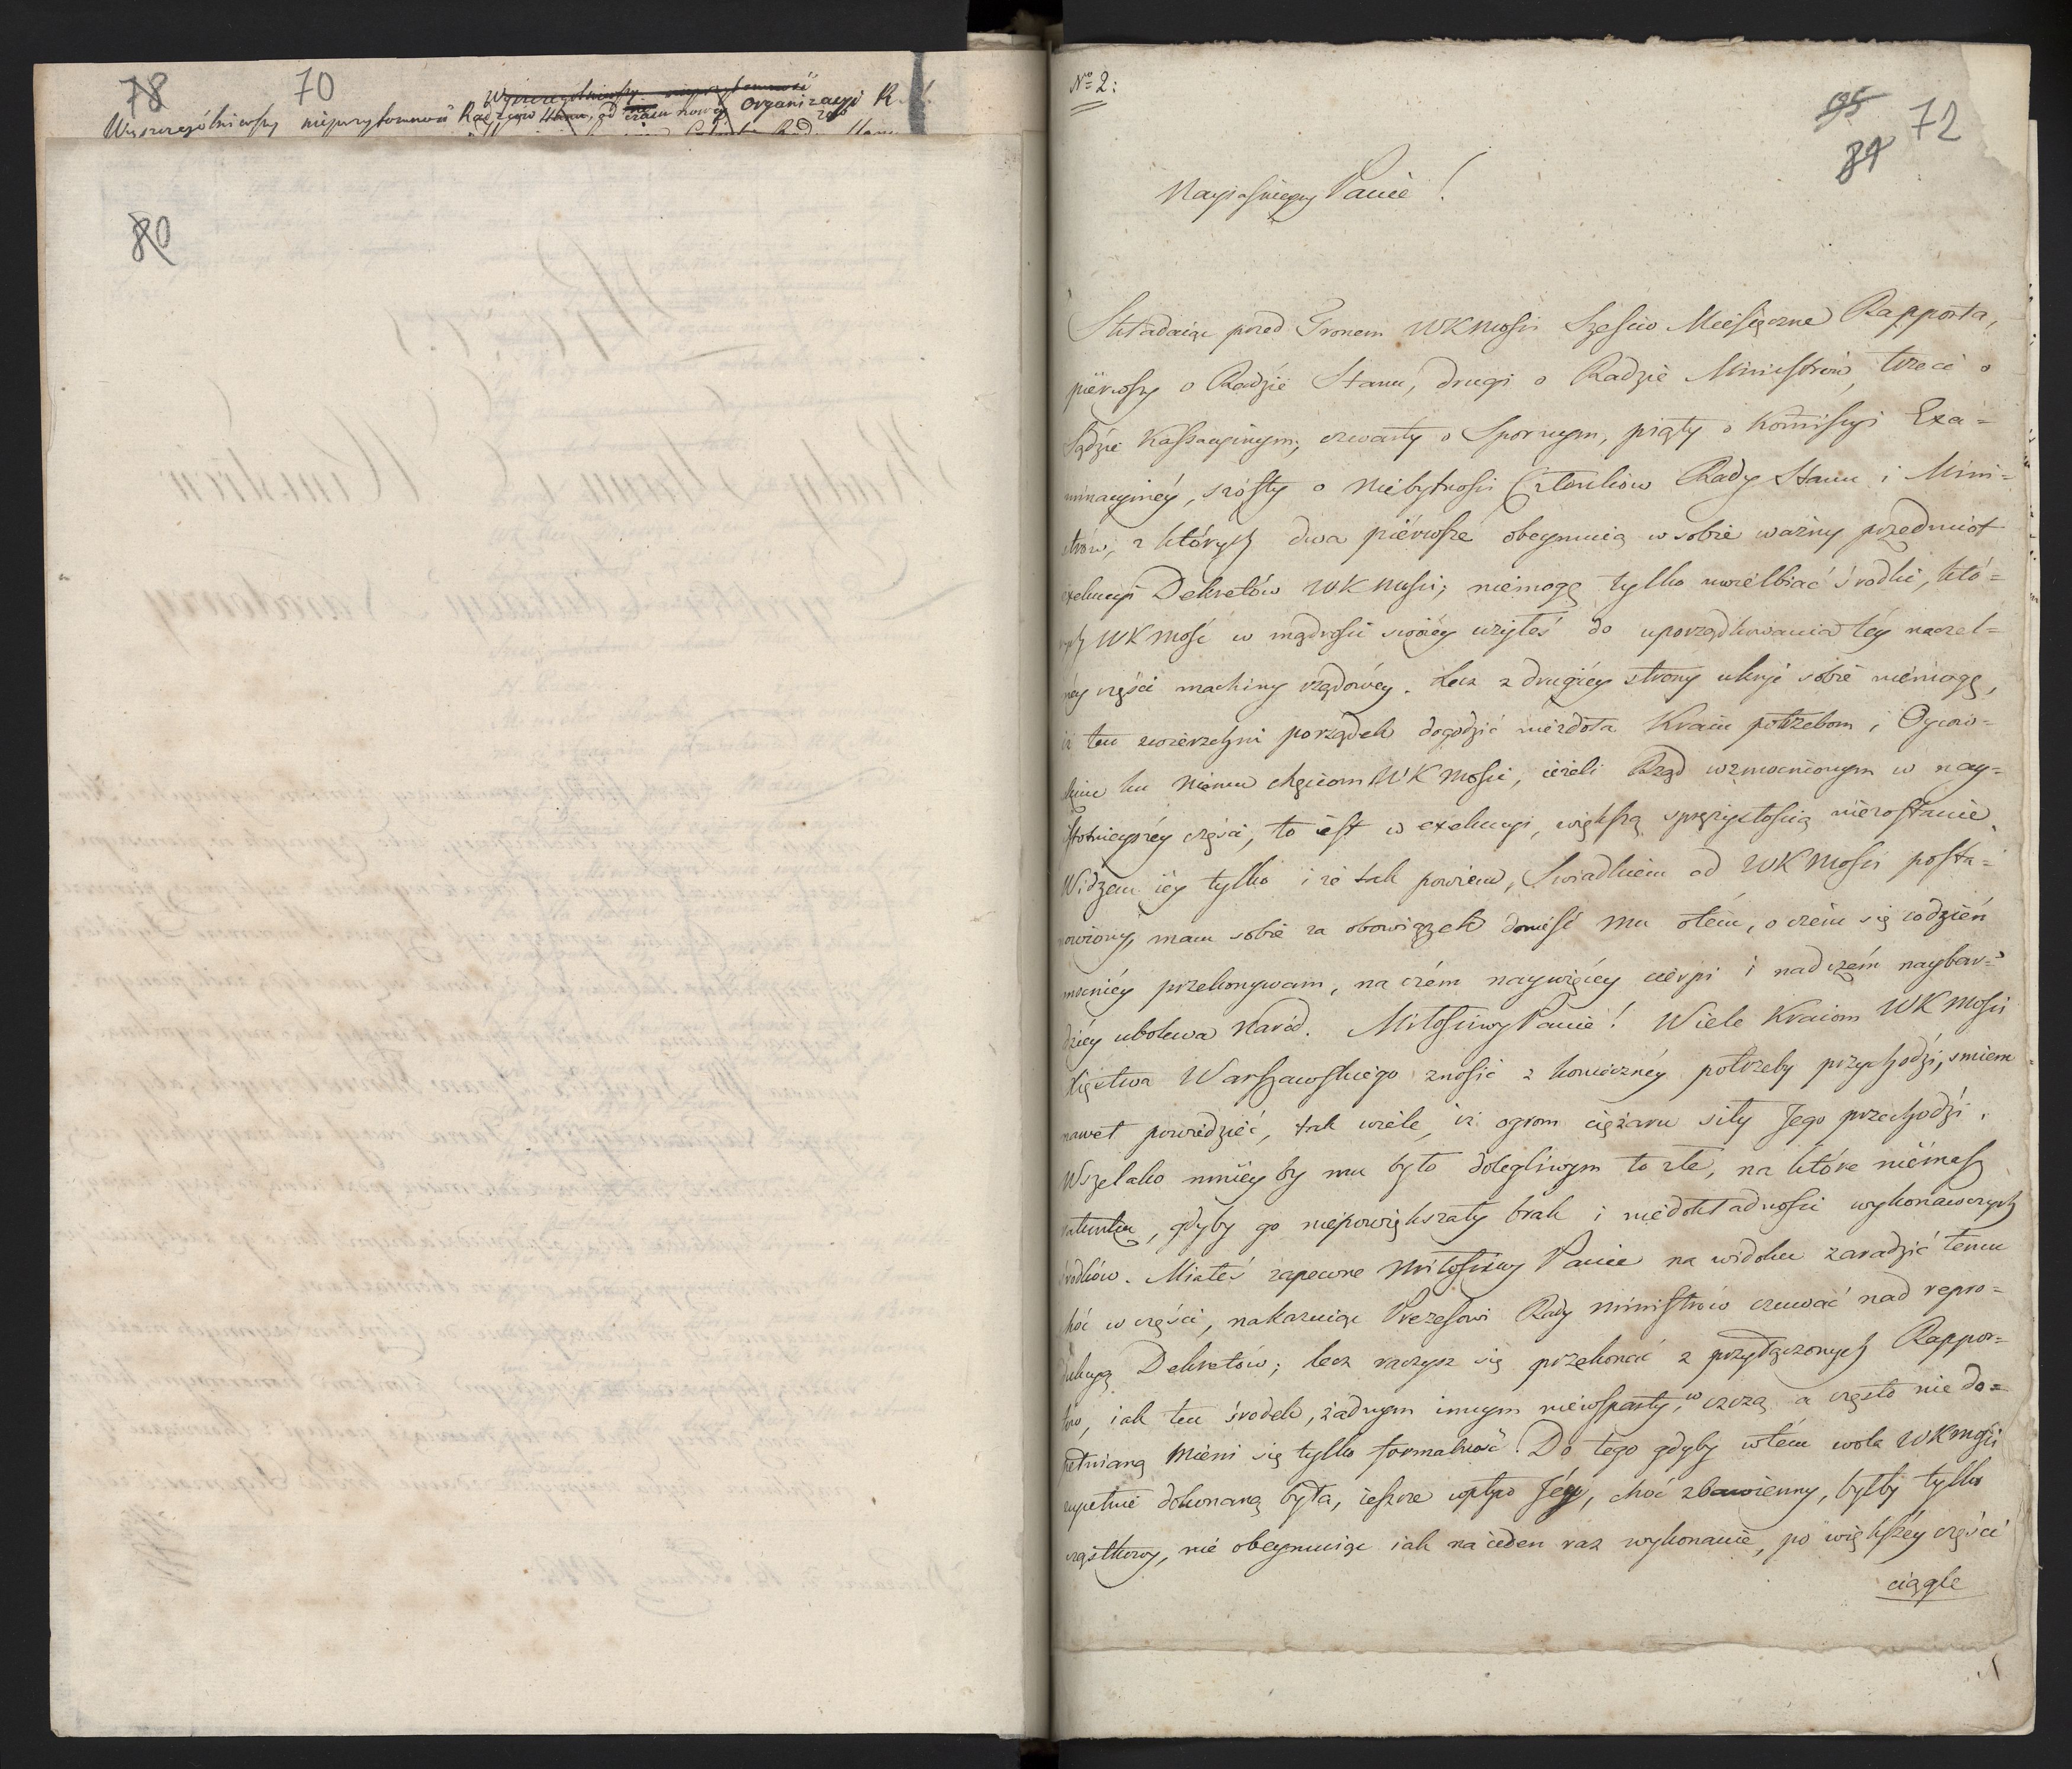 78 70
Wyszczególniwszy nieprzytomność
Wyszczególniwszy nieprzytomność Radzców Stanu, od czasu nowéy Organizacyi R.
80
Nro 2:
95 72
84
Nayiaśnieyszy Panie!
Składaiąc przed Tronem WKMości Sześcio Miesięczne Rapporta,
piérwszy o Radzie Stanu, drugi o Radzie Ministrów, trzeci o
Sądzie Kassacyinym, czwarty o Spornym, piąty o Kommissyi Exa=
minacyinéy, szósty o Niebytności Członków Rady Stanu i Mini=
strów, z których dwa piérwsze obeymuią w sobie ważny przedmiot
exekucyi Dekretów WKMości, niemogę tylko uwielbiać środki, któ=
rych WKMość w mądrości swoiéy użyłeś do uporządkowania téy naczel=
néy części machiny rządowéy. Lecz z drugiéy strony ukryć sobie niemogę,
iż ten zwierzchni porządek dogodzić niezdoła Kraiu potrzebom i Oycow=
skim ku niemu chęciom WKMości, ieżeli Rząd wzmocnionym w nay=
istotnieyszéy części, to iest w exekucyi, większą sprężystością niezostanie.
Widzem iéy tylko i że tak powiem, Swiadkiem od WKMości posta=
nowiony, mam sobie za obowiązek donieść Mu otém, o czém się codzień
mocniéy przekonywam, na czém naywięcéy cierpi i nad czém naybar=
dziéy ubolewa Naród. Miłościwy Panie! Wiele Kraiom WKMości
Xięstwa Warszawskiego znosić z koniecznéy potrzeby przychodzi, smiem
nawet powiedzieć, tak wiele, iż ogrom ciężaru siły Jego przechodzi.
Wszelako mniéy by mu było dolegliwym to złe, na które niémasz
ratunku, gdyby go niepowiększały brak i niedokładności wykonawczych
środków. Miałeś zapewne Miłościwy Panie na widoku zaradzić temu
choć w części, nakazuiąc Prezesowi Rady Ministrów czuwać nad repro=
dukcyą Dekretów; lecz raczysz się przekonać z przyłączonych Rappor=
tów, iak ten środek, żadnym innym niewsparty, w czczą a często nie do=
pełnianą mieni się tylko formalność. Do tego gdyby wtém wola WKMości
zupełnie dokonaną była, ieszcze wpływ Jéy, choć zbawienny, byłby tylko
cząstkowy, nie obeymuiąc iak na ieden raz wykonanie, po większéy części
ciągle